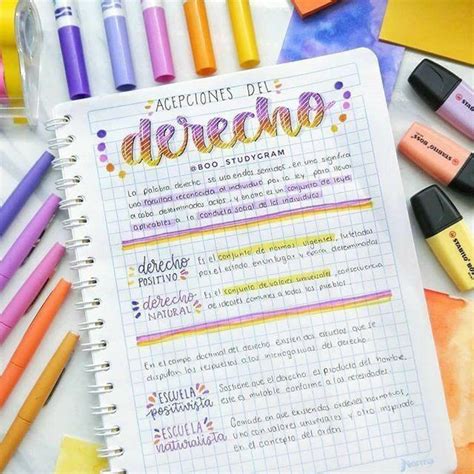 ACEPCIONES DEL
derecho
@BOO_STUDYGRAM
La palabra derecho se usa en dos sentidos. en uno significa
una facultad reconocida al individuo por la ley para llevar
a cabo determinados actos, y en otro es un conjunto de leyes
aplicables a la conducta social de los individuos.
derecho
POSITIVO
Es el conjunto de normas vigentes,
por el estado en un lugar y época determinados
derecho
NATURAL
Es el conjunto de valores universales, consecuencia
de ideales comunes a todos los pueblos.
En el campo doctrinal del derecho existen dos escuelas que se
disputan las respuestas a las interrogativas del derecho.
ESCUELA
positivista
Sostiene que el derecho es producto del hombre,
este es mutable conforme a las necesidades.
ESCUELA
naturalista
Coincide en que existen dos órdenes normativos,
uno con valores universales y otro inspirado
en el concepto del orden.
norma
STABILO BOSS
STABILO BOSS
STABILO BOSS